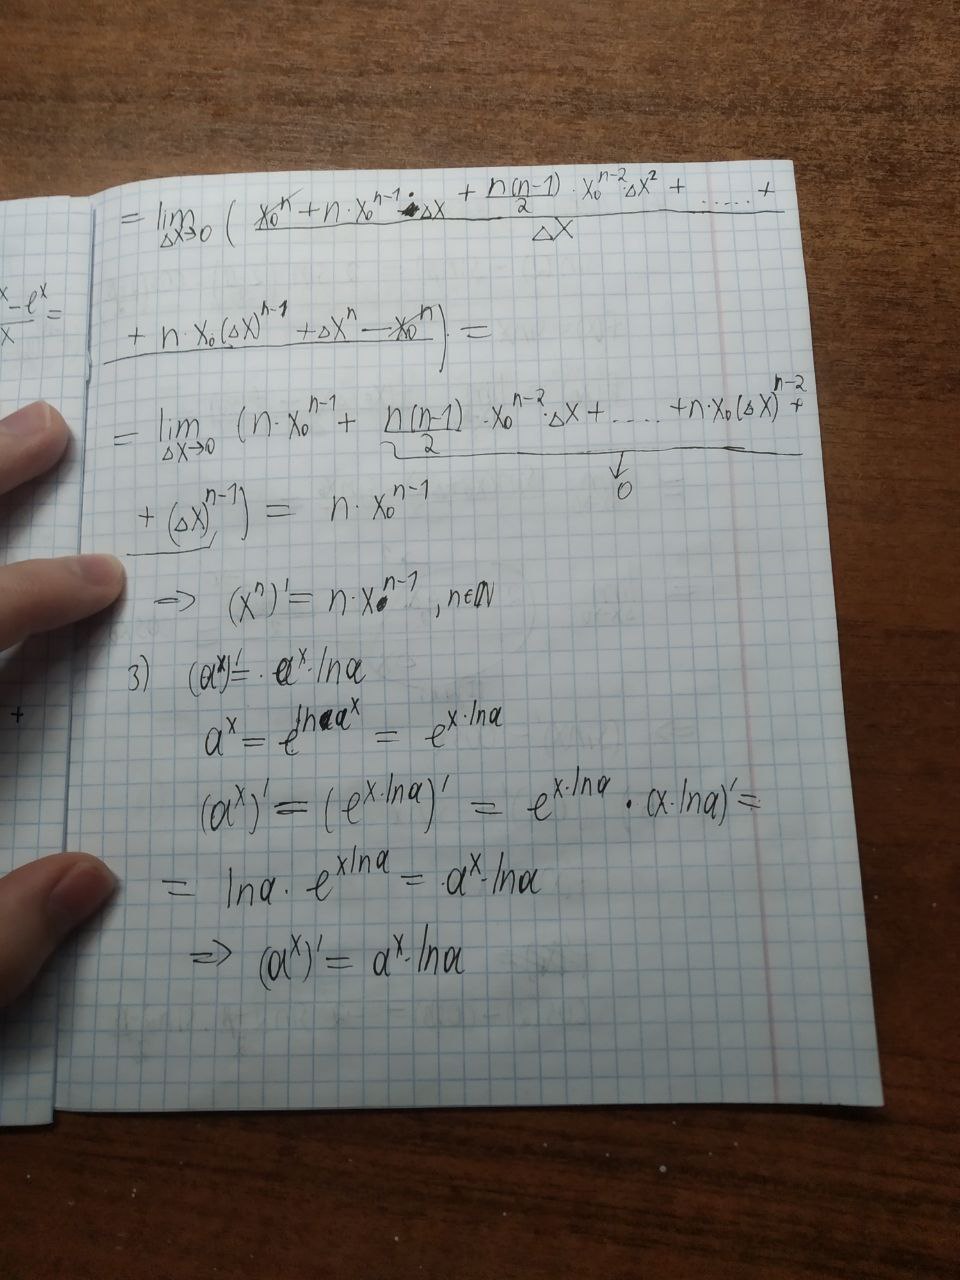 = lim Δx→0 ( x₀ⁿ + n · x₀ⁿ⁻¹ · Δx + n(n-1)/2 · x₀ⁿ⁻² · Δx² + ...... +
Δx
+ n · x₀(Δx)ⁿ⁻¹ + Δxⁿ — x₀ⁿ ) =
x – eˣ
x =
= lim Δx→0 ( n · x₀ⁿ⁻¹ + n(n-1)/2 · x₀ⁿ⁻² · Δx + ..... + n · x₀(Δx)ⁿ⁻² +
0
+ (Δx)ⁿ⁻¹ ) = n · x₀ⁿ⁻¹
=> (xⁿ)' = n · xⁿ⁻¹, n∈ℕ
3) (aˣ)' = aˣ · ln a
aˣ = e^(ln aˣ) = e^(x·ln a)
(aˣ)' = (e^(x·ln a))' = e^(x·ln a) · (x · ln a)' =
= ln a · e^(x ln a) = aˣ · ln a
=> (aˣ)' = aˣ · ln a
+